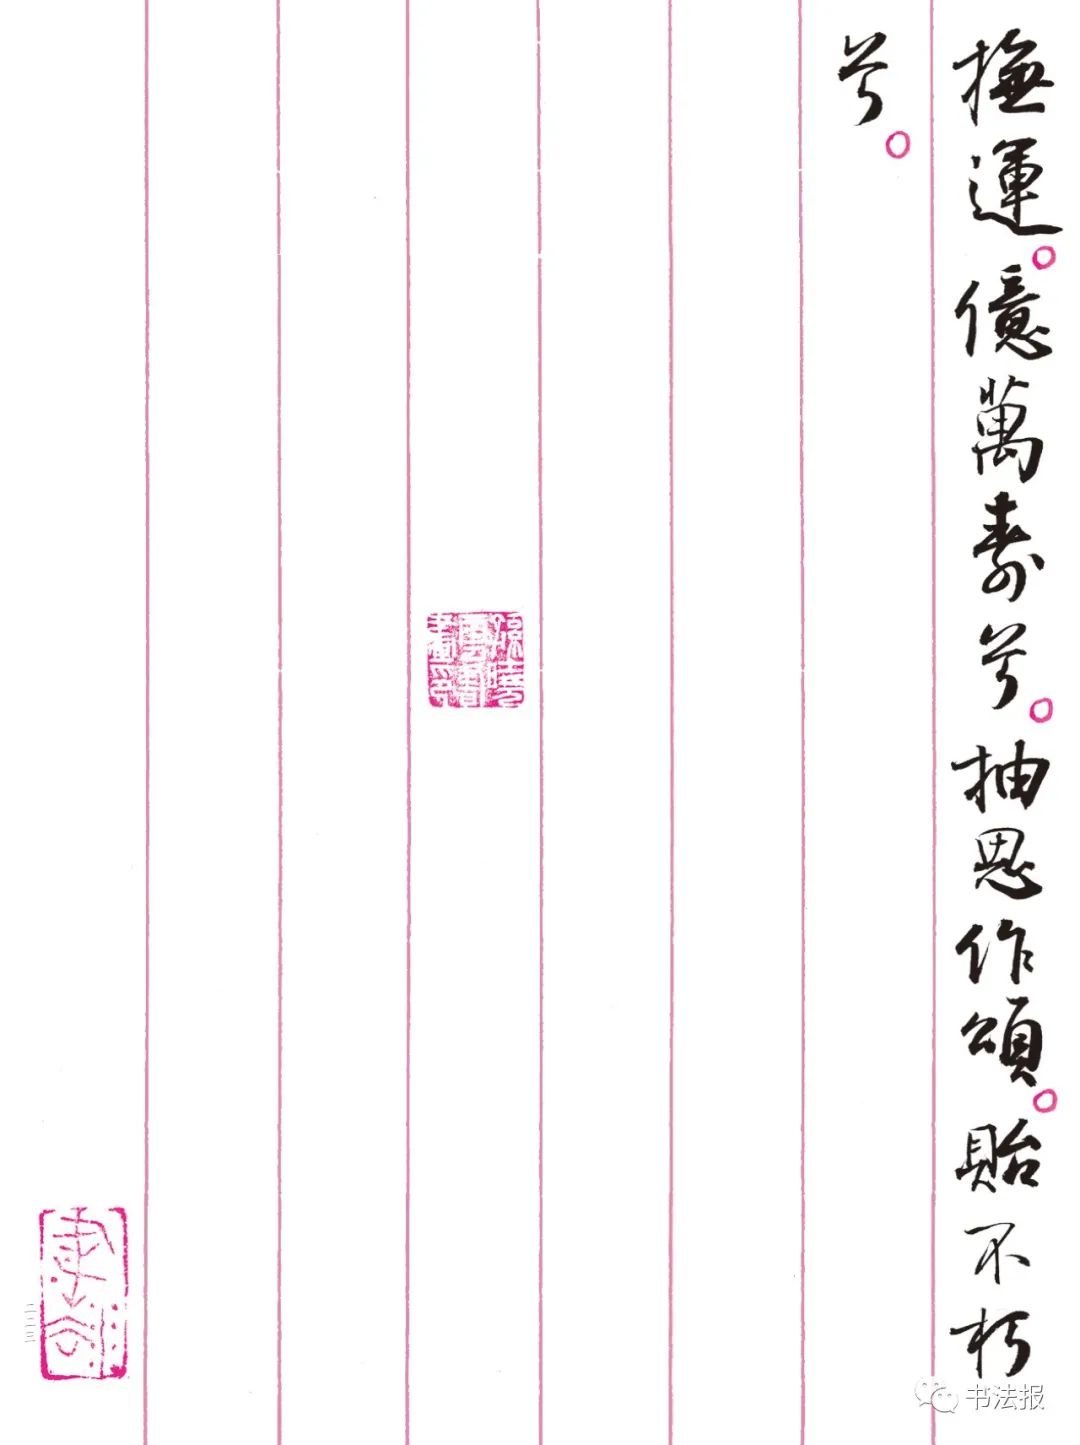 撫運。億萬壽兮。抽恩作頌。貽不朽
兮。
书法报